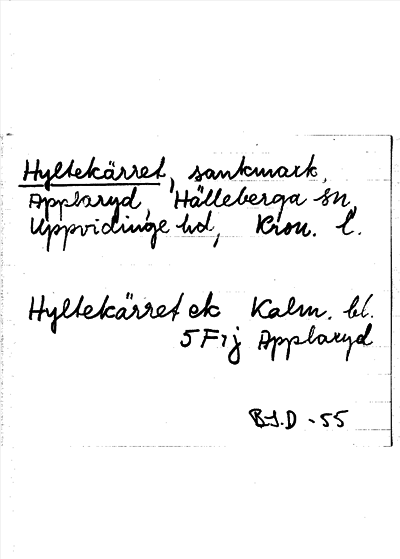 Hyltekärret, sankmark,
Applaryd, Hälleberga sn,
Uppvidinge hd, Kron. l.
Hyltekärret ek Kalm. bl.
5F7j Applaryd
B.J.D - 55